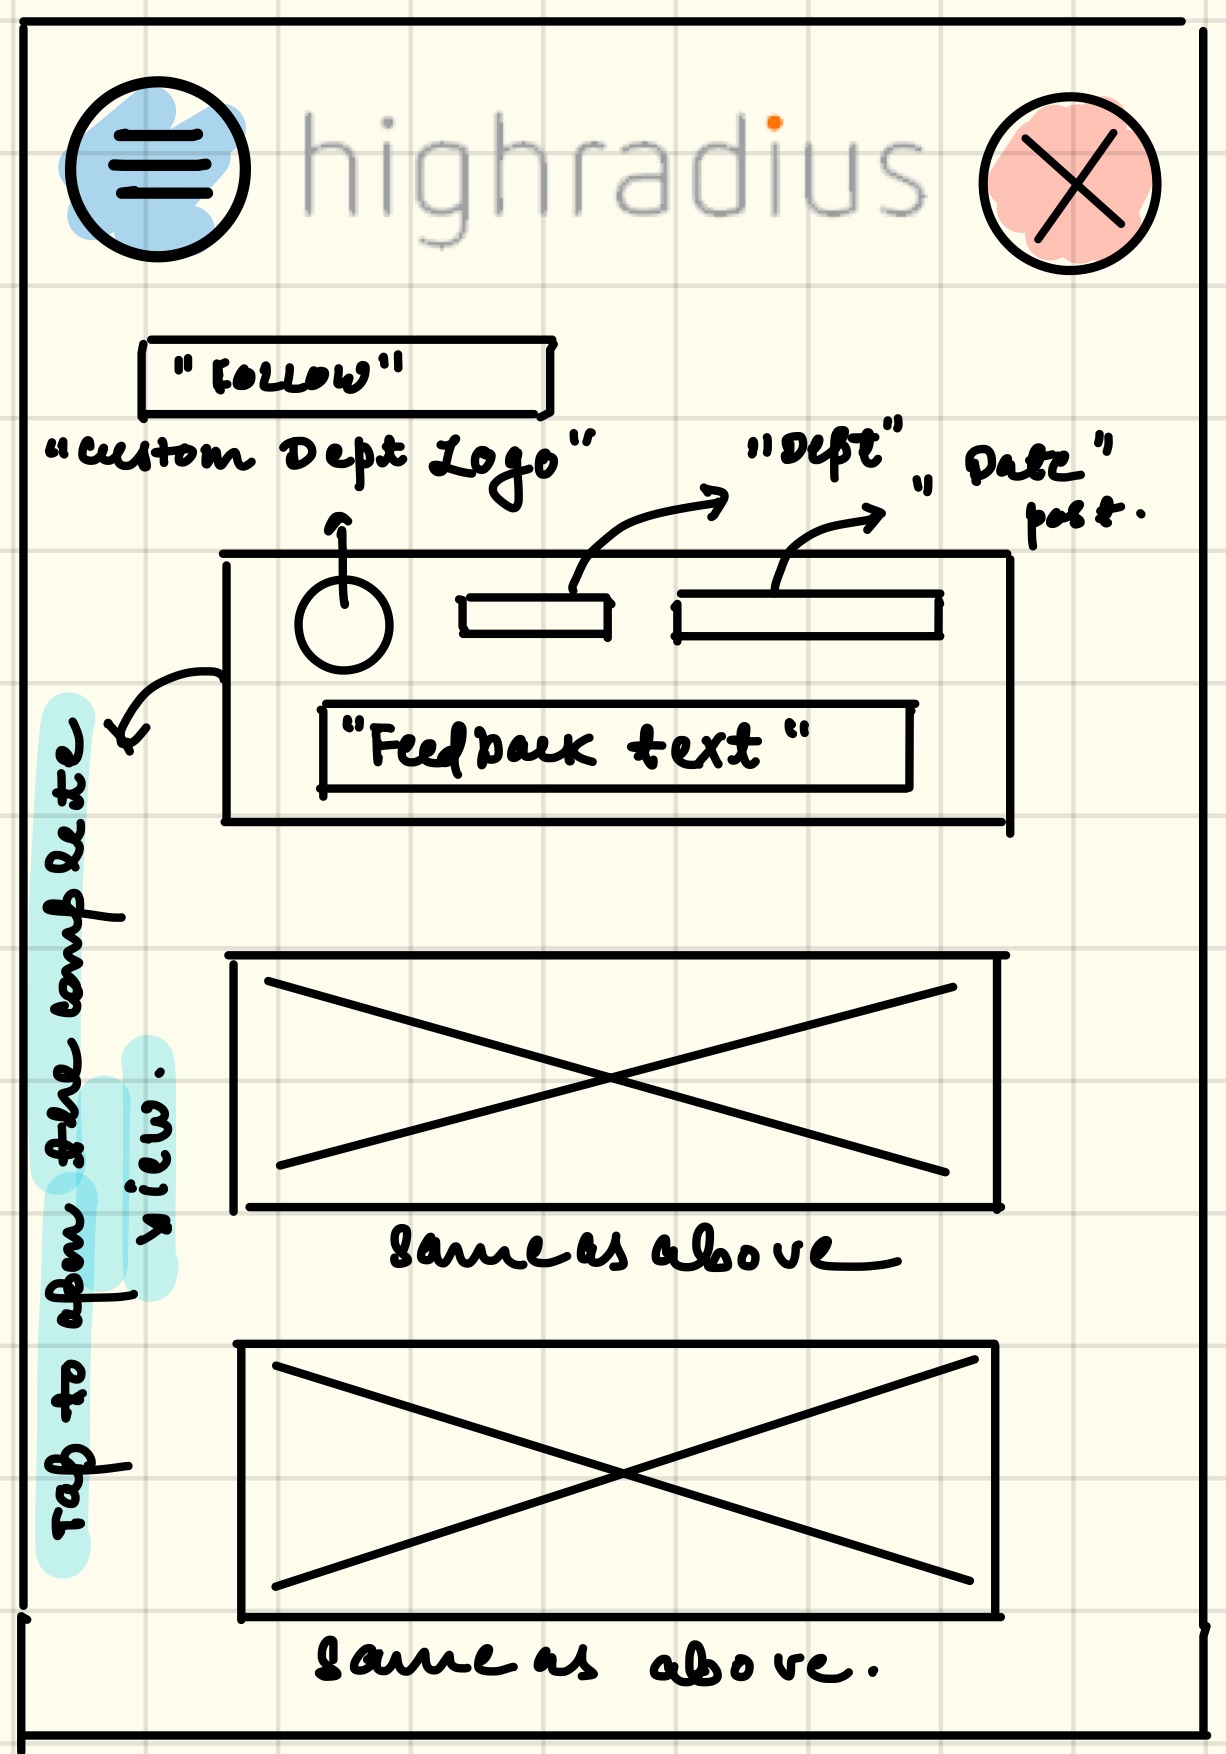 highradius
"Follow"
"Custom Dept Logo"
"Dept"
"Date"
post.
"Feedback text"
Tap to open the complete
view.
same as above
same as above.